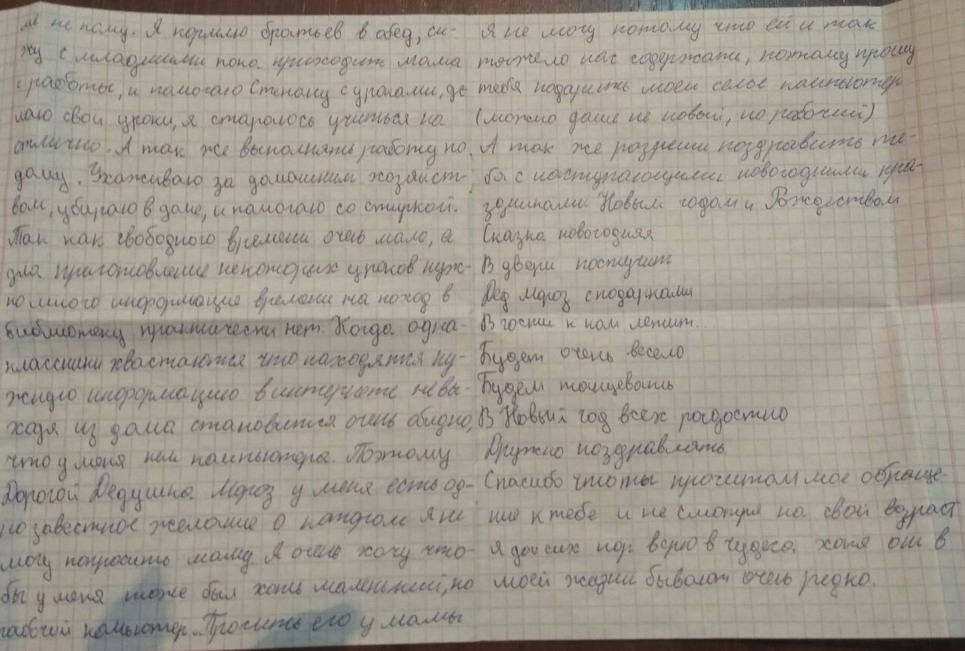 не кому. Я кормлю братьев в обед, си-
жу с младшими пока приходит мама
с работы, и помогаю Степану с уроками, де
лаю свои уроки, я стараюсь учиться на
отлично. А так же выполнять работу по
дому. Ухаживаю за домашним хозяйст-
вом, убираю в доме, и помогаю со стиркой.
Так как свободного времени очень мало, а
для приготовление некоторых уроков нуж-
но много информацие времени на поход в
библиотеку практически нет. Когда одно-
классники хвастаются что находятся ну-
жную информацию в интернете не вы-
ходя из дома становится очень обидно,
что у меня нет компьютера. Поэтому
Дорогой Дедушка Мороз у меня есть од-
но заветное желание о котором я не
могу попросить маму. Я очень хочу что-
бы у меня тоже был хоть маленький, но
рабочий компьютер. Просить его у мамы
Я не могу потому что ей и так
тяжело нас содержать, поэтому прошу
тебя подарить моей семье компьютер
(можно даже не новый, но рабочий)
А так же разреши поздравить те-
бя с наступающими новогодними праз-
дниками Новым годом и Рождеством
Сказка новогодняя
В двери постучит
Дед Мороз с подарками
В гости к нам летит.
Будет очень весело
Будем танцевать
В Новый год всех радостно
Дружно поздравлять.
Спасибо что ты прочитал мое обраще-
ние к тебе и не смотря на свой возраст
я до сих пор верю в чудеса. хотя они в
моей жизни бывают очень редко.